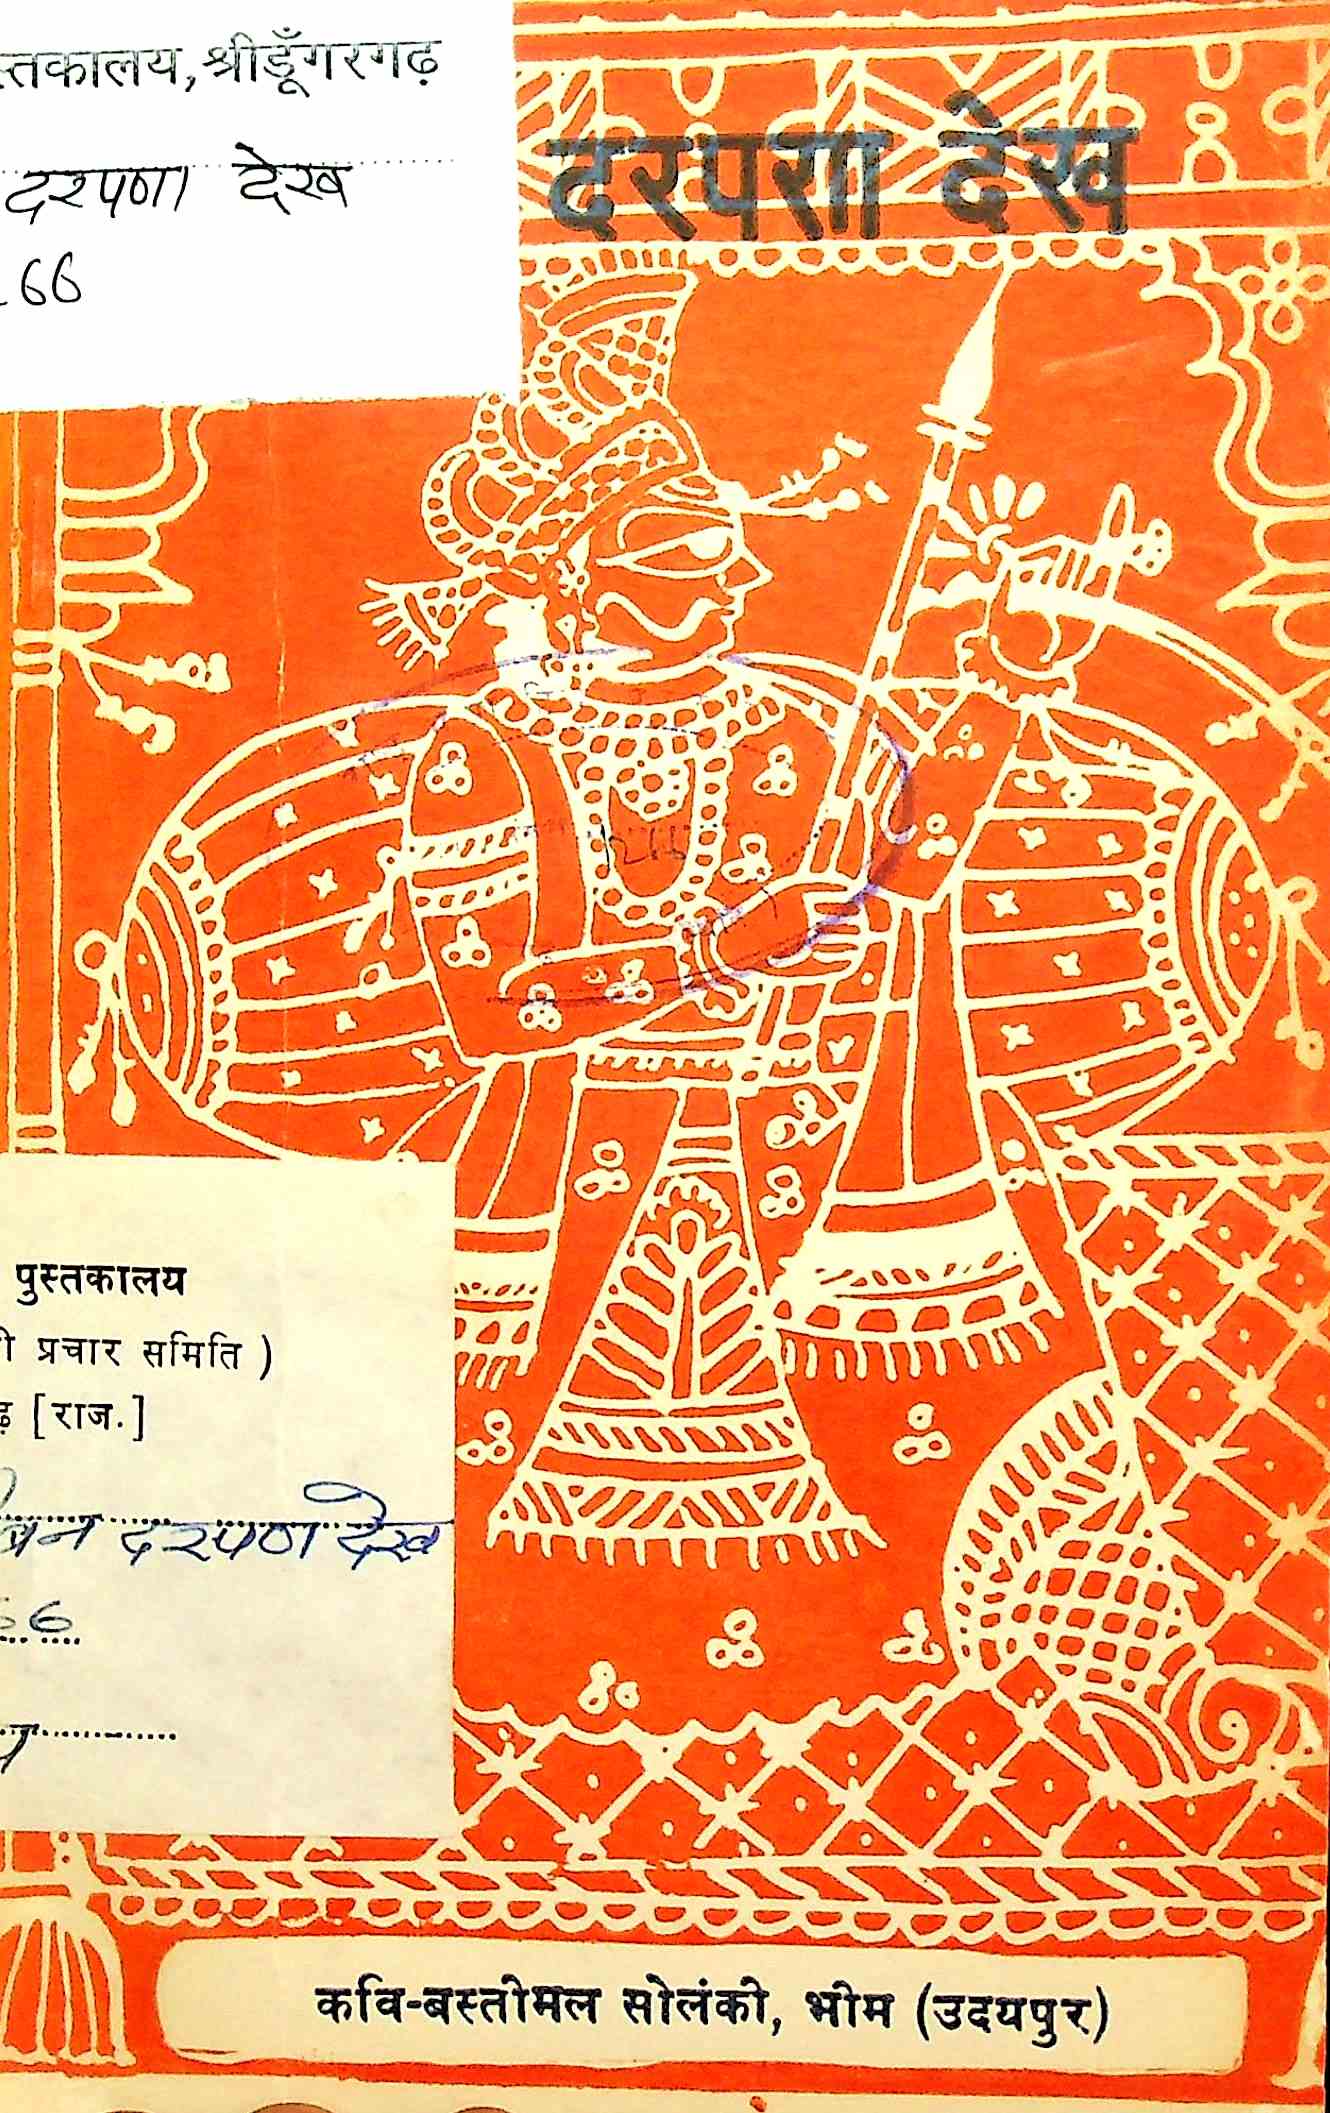 स्तकालय, श्रीडूँगरगढ़
दरपण देख
66
दरपण देख
पुस्तकालय
प्रचार समिति )
[राज.]
दरपण देख
6
कवि-बस्तीमल सोलंकी, भीम (उदयपुर)